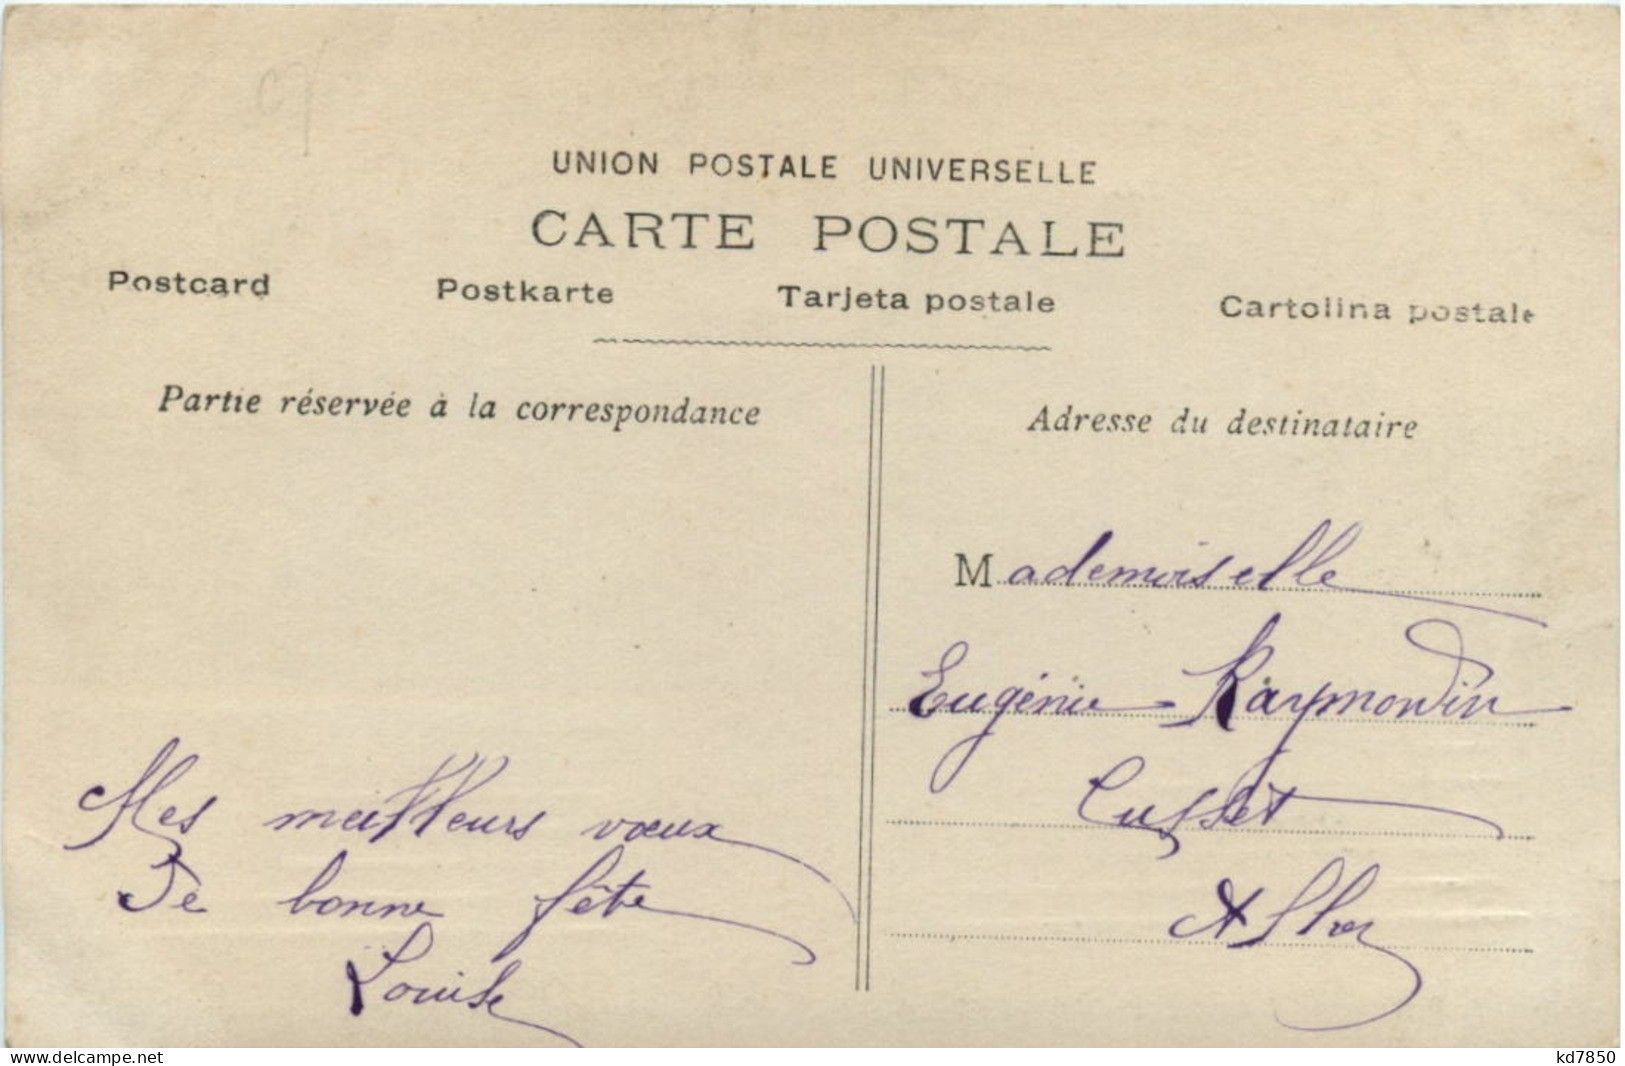 UNION POSTALE UNIVERSELLE
CARTE POSTALE
Postcard Postkarte Tarjeta postale Cartolina postale
Partie réservée à la correspondance
Mes meilleurs vœux
De bonne fête
Louise
Adresse du destinataire
Mademoiselle
Eugénie Raymondin
Cusset
Allier
www.delcampe.net
kd7850